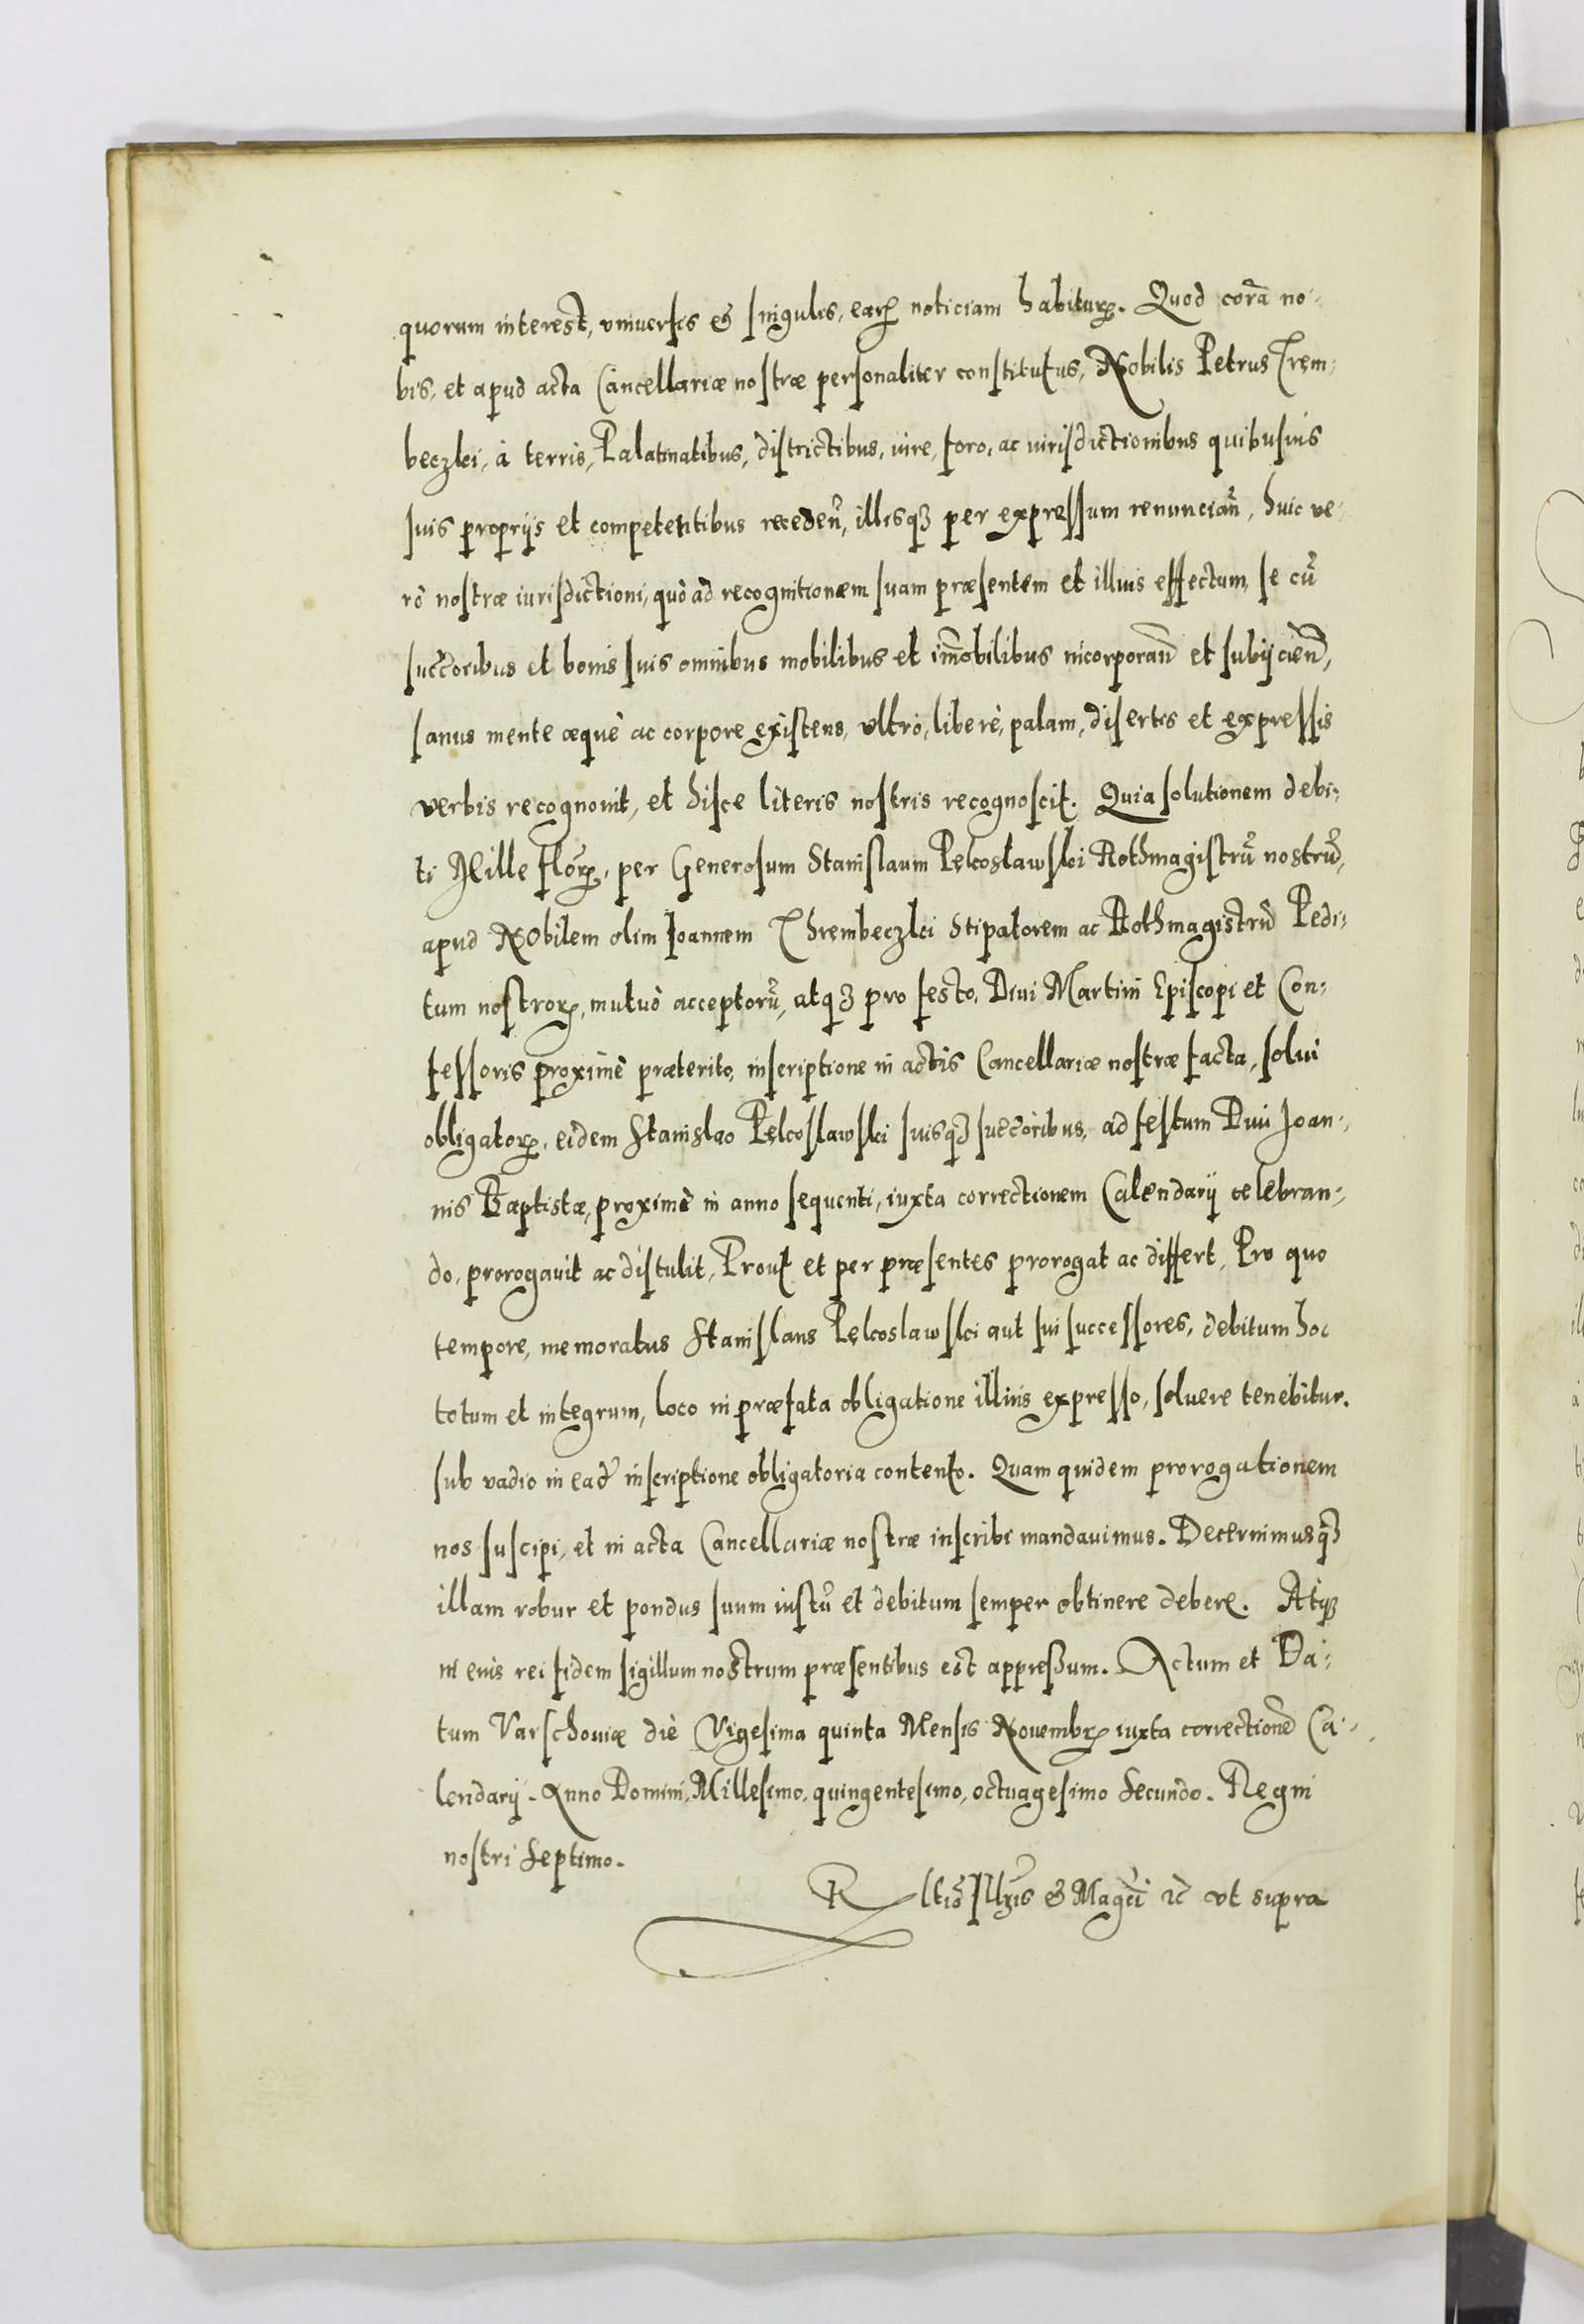 quorum interest, vniuersis & singulis, earꝝ noticiam habiturꝝ. Quod corã no-
bis, et apud acta Cancellariæ nostræ personaliter constitutus, Nobilis Petrus Trem-
beczki, à terris, Palatinatibus, districtibus, iure, foro, ac iurisdictionibus quibusuis
suis proprijs et competentibus receden̄, illisqꝫ per expressum renuncian̄, huic ve-
rò nostræ iurisdictioni, quò ad recognitionem suam præsentem et illius effectum, se cũ
succōribus et bonis suis omnibus mobilibus et im̃obilibus incorporan̄ et subijcien̄,
sanus mente æquè ac corpore existens, vltrò, liberè, palam, disertis et expressis
verbis recognouit, et hisce literis nostris recognoscit. Quia solutionem debi-
ti Mille florꝝ, per Generosum Stanislaum Pękoslawski Rothmagistrũ nostrũ,
apud Nobilem olim Ioannem Thrembeczki Stipatorem ac Rothmagistrũ Pedi-
tum nostrorꝝ, mutuò acceptorũ, atqꝫ pro festo Diui Martini Episcopi et Con-
fessoris proximè præterito, inscriptione in actis Cancellariæ nostræ facta, solui
obligatorꝝ, eidem Stanislao Pękoslawski suisqꝫ succōribus, ad festum Diui Joan-
nis Baptistæ, proximè in anno sequenti, iuxta correctionem Calendarij celebran-
do, prorogauit ac distulit, Prout et per præsentes prorogat ac differt, Pro quo
tempore, memoratus Stanislaus Pękoslawski aut sui successores, debitum hoc
totum et integrum, loco in præfata obligatione illius expresso, soluere tenebitur.
sub vadio in eadē inscriptione obligatoria contento. Quam quidem prorogationem
nos suscipi, et in acta Cancellariæ nostræ inscribi mandauimus. Decernimusqꝫ
illam robur et pondus suum iustũ et debitum semper obtinere debere. Atqꝫ
in eius rei fidem sigillum nostrum præsentibus est appressum. Actum et Da-
tum Varschouiæ diè Vigesima quinta Mensis Nouembrꝭ iuxta correctionē Ca-
lendarij. Anno Domini, Millesimo, quingentesimo, octuagesimo Secundo. Regni
nostri Septimo.
Rltiõ Illr̃is & Magci ꝛc̃ vt supra